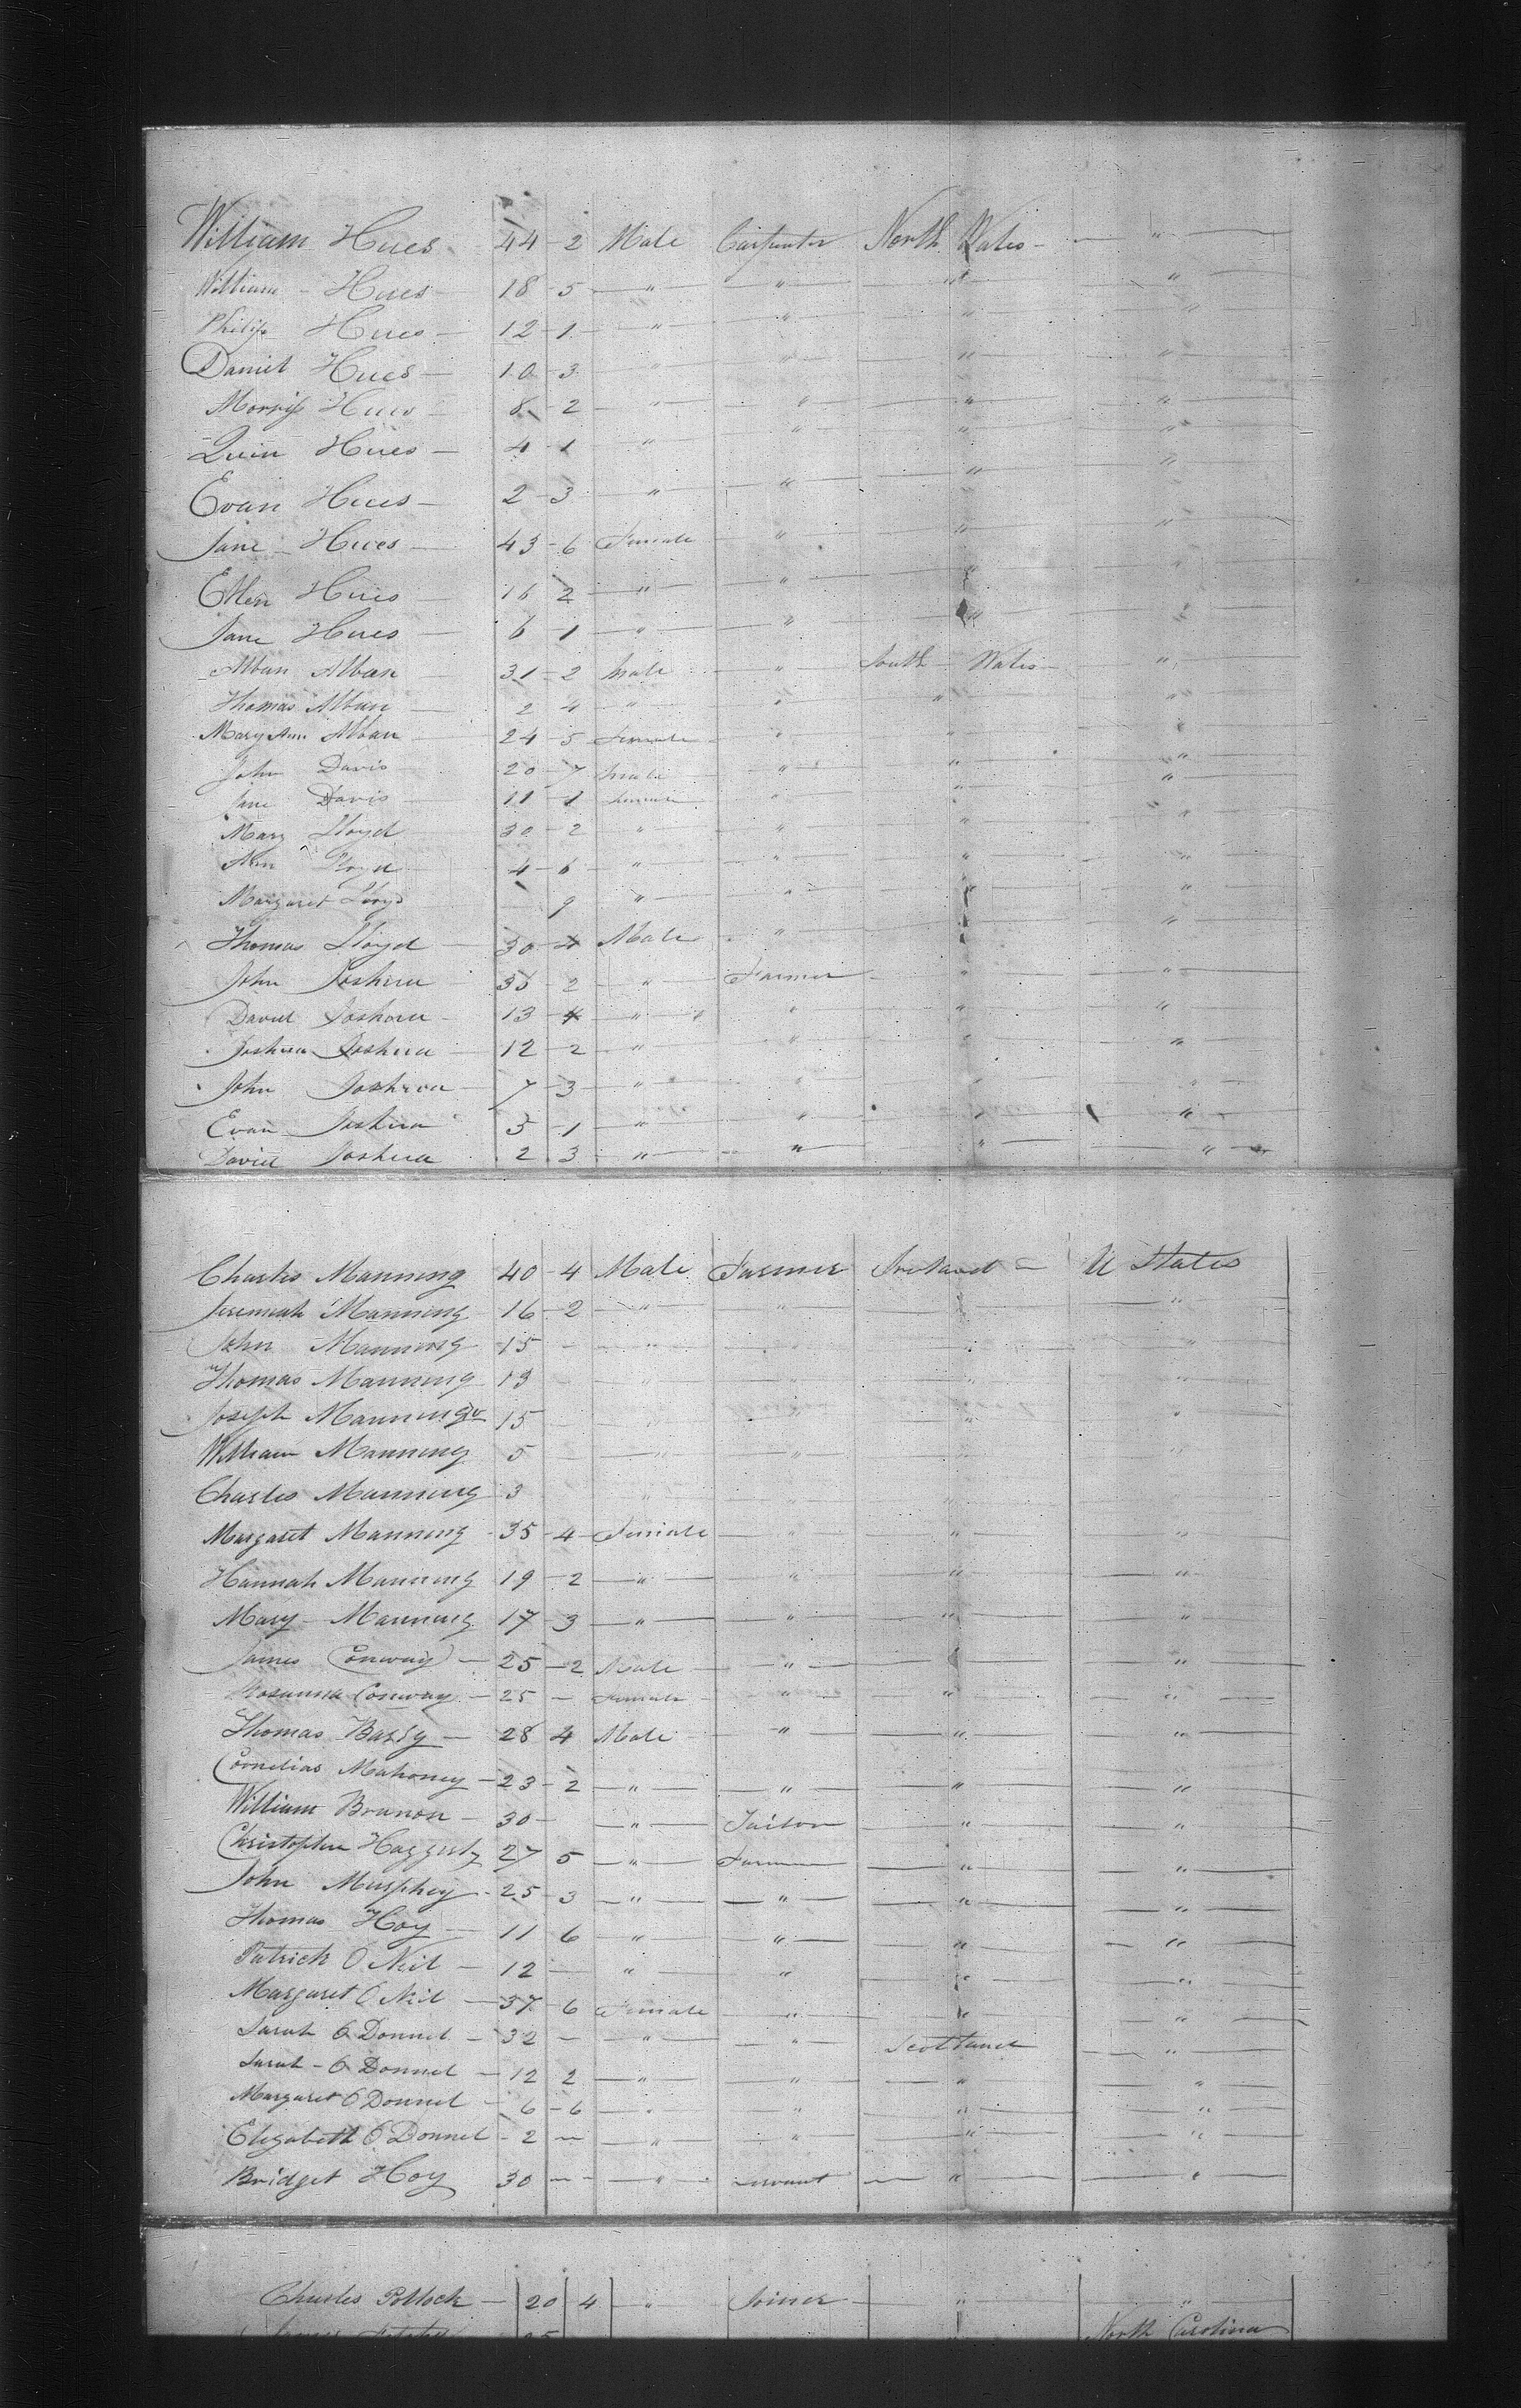 William Hues 44 - 2 Male Carpenter North Wales - "
William - Hues 18 - 5 " " " "
Philip Hues - 12 - 1 " " " "
Daniel Hues - 10 - 3 " " " "
Morris Hues 8 - 2 " " " "
Hues - 4 - 1 " " " "
Evan Hues - 2 - 3 " " " "
Jane - Hues - 43 - 6 Female " " "
Ellen Hues - 16 2 " " " "
Jane Hues - 6 - 1 " " " "
Alban Alban 31 - 2 Male " South Wales - "
Thomas Alban - 2 4 " " " "
Mary Ann Alban 24 - 5 Female " " "
John Davis 20 - 7 Male " " "
Jane Davis 11 - 1 Female " " "
Mary Lloyd 30 - 2 " " " "
Ann Lloyd 4 - 6 " " " "
Margaret Lloyd 9 " " " "
Thomas Lloyd - 30 - 4 Male " " "
John Joshua 35 - 2 " Farmer " "
David Joshua - 13 - 4 " " " "
Joshua Joshua 12 - 2 " " " "
John Joshua 7 - 3 " " " "
Evan Joshua 5 - 1 " " " "
David Joshua 2 3 " " " "
Charles Manning 40 - 4 Male Farmer Ireland - U States
Jeremiah Manning 16 - 2 " " " "
John Manning 15 - " " " "
Thomas Manning 13 " " " "
Joseph Manning 15 " " " "
William Manning 5 " " " "
Charles Manning 3 " " " "
Margaret Manning - 35 - 4 - Female " " "
Hannah Manning 19 - 2 " " " "
Mary - Manning 17 - 3 " " " "
James Conway - 25 - 2 Male " " "
Rosanna Conway - 25 - Female " " "
Thomas - 28 4 Male " " "
Cornelias Mahoney - 23 - 2 " " " "
William Brunon - 30 - " Tailor " "
Christopher Haggerty 27 5 " Farmer " "
John Murphey - 25 - 3 " " " "
Thomas Hoy - 11 6 " " " "
Patrick O Neil - 12 - " " " "
Margaret O Neil - 37 - 6 Female " " "
Sarah O Donnel - 32 - " " Scotland "
Sarah - O Donnel - 12 2 " " " "
Margaret O Donnel - 6 - 6 " " " "
Elizabeth O Donnel - 2 - " " " "
Bridget Hoy 30 - " servant " "
Charles Pollock - 20 4 " Joiner " "
James 25 North Carolina